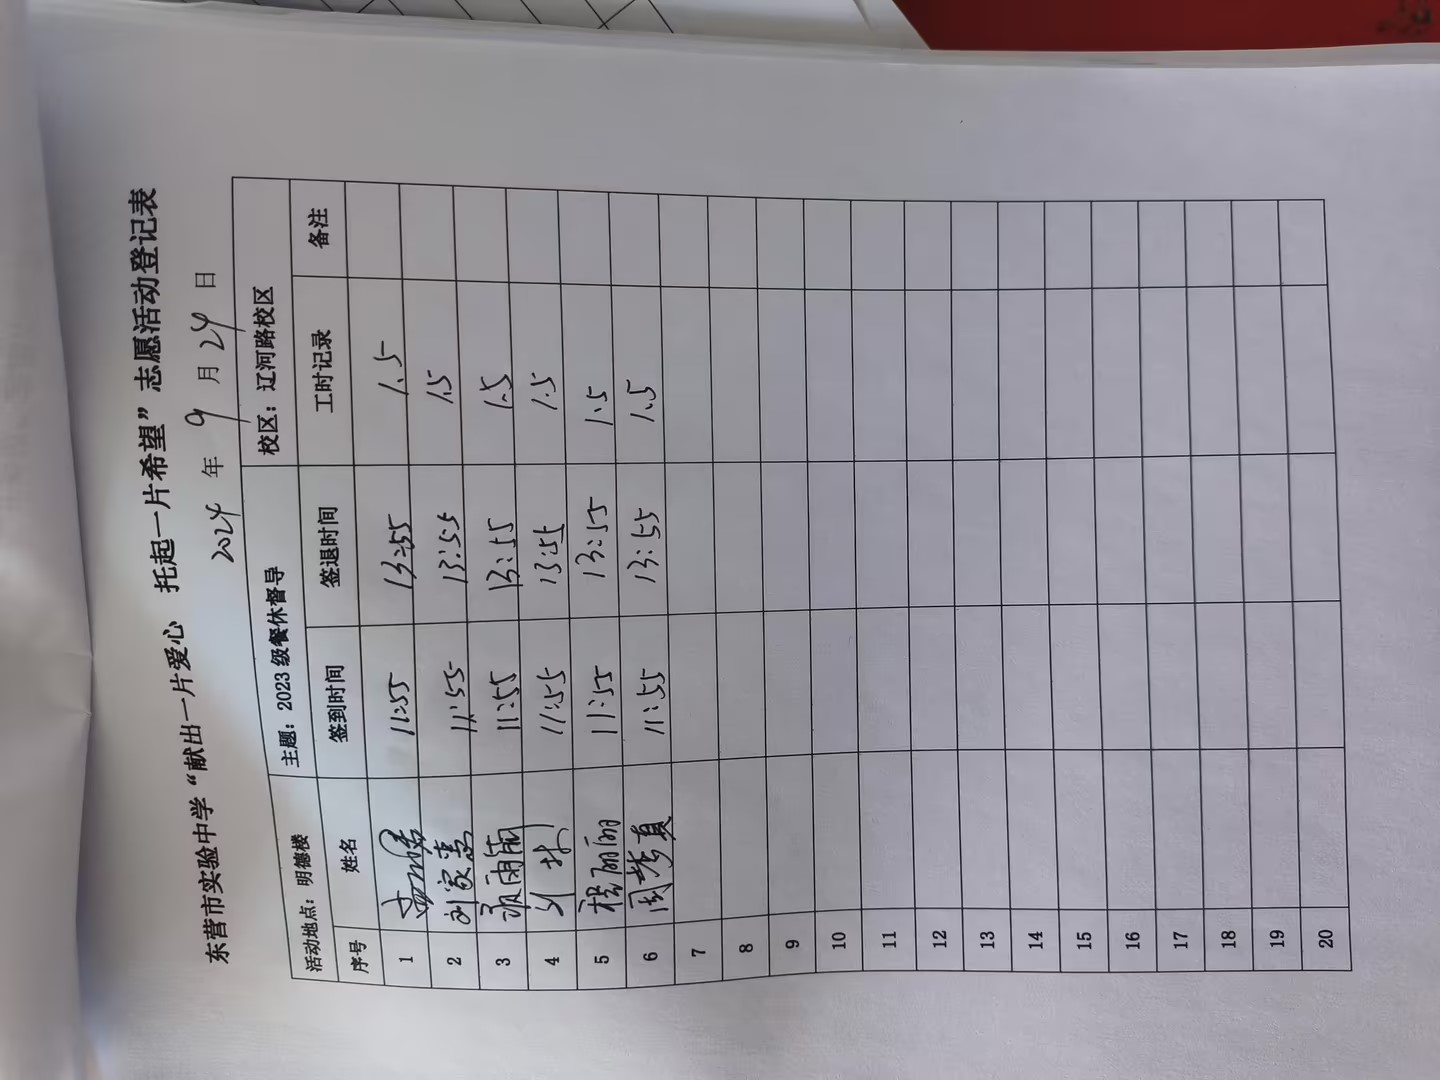 东营市实验中学“献出一片爱心 托起一片希望”志愿活动登记表
2024 年 9 月 24 日
活动地点：明德楼 主题：2023 级餐休督导 校区：辽河路校区
序号 姓名 签到时间 签退时间 工时记录 备注
1 11:55 13:55 1.5
2 刘家惠 11:55 13:55 1.5
3 雨 11:55 13:55 1.5
4 刘 11:55 13:55 1.5
5 程丽丽 11:55 13:55 1.5
6 周梦真 11:55 13:55 1.5
7
8
9
10
11
12
13
14
15
16
17
18
19
20